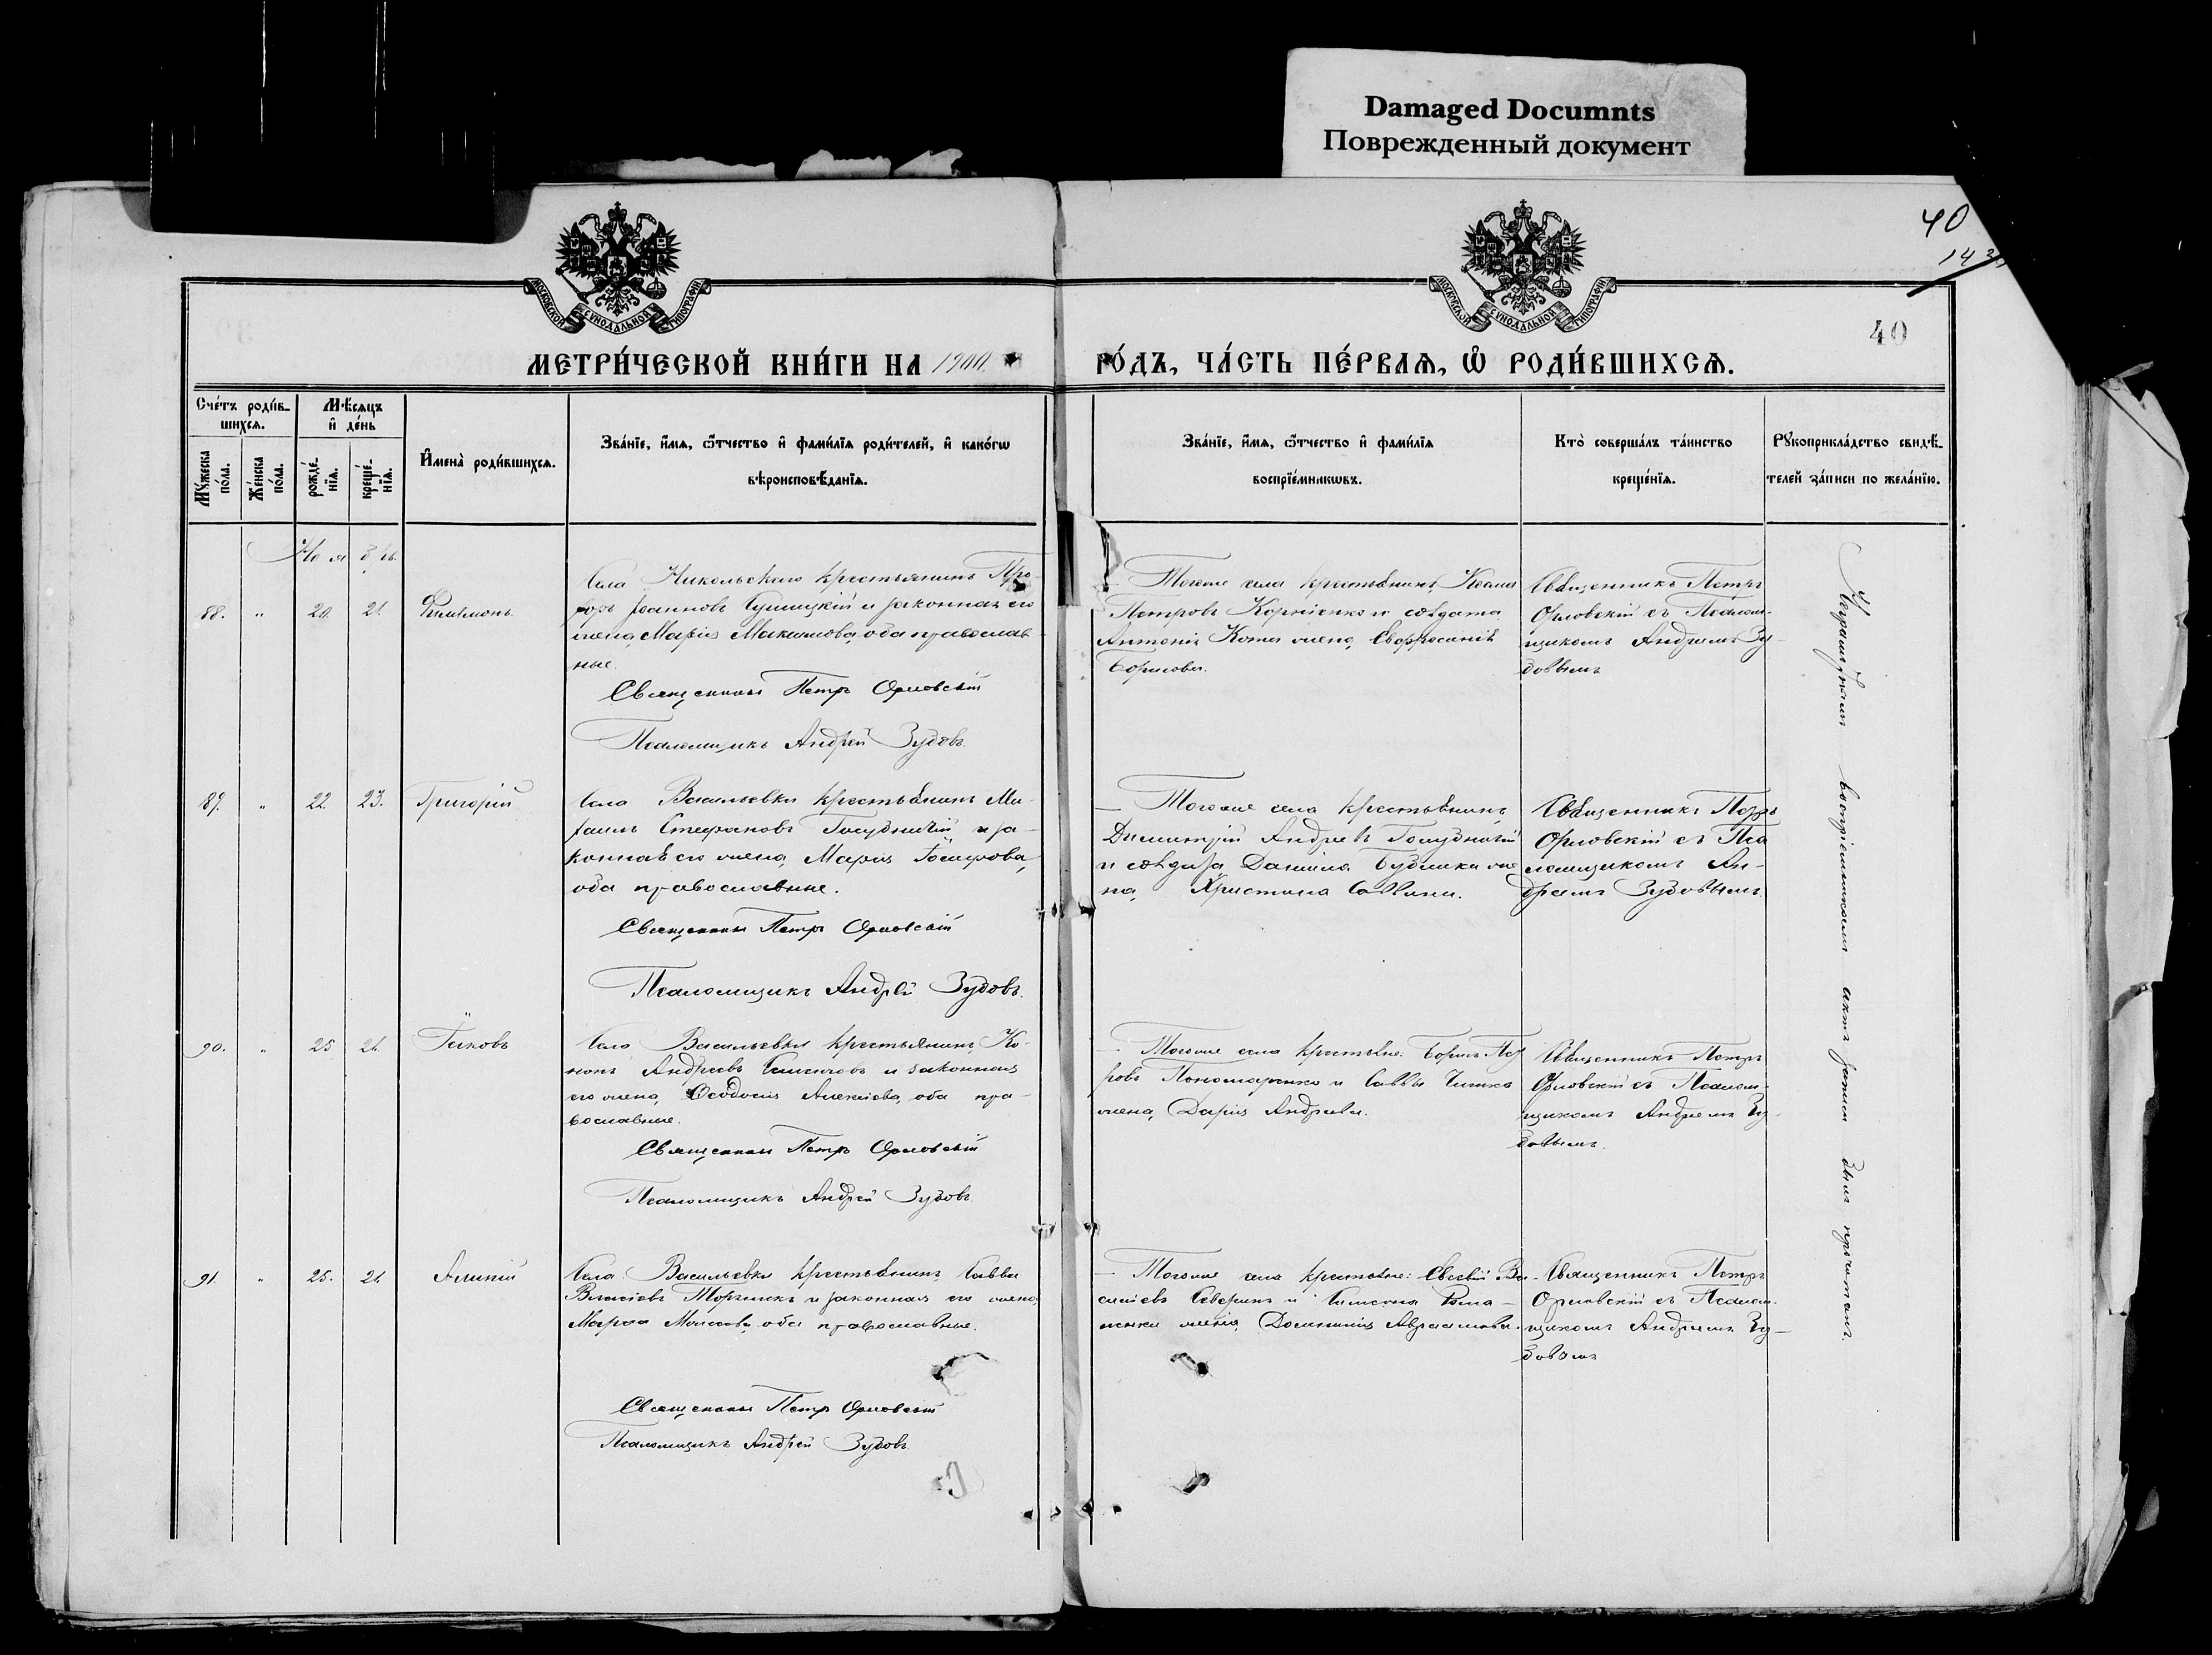 Damaged Documnts
Поврежденный документ
40
143
40
МОСКОВСКОЙ СУНОДАЛЬНОЙ ТИПОГРАФІИ
МОСКОВСКОЙ СУНОДАЛЬНОЙ ТИПОГРАФІИ
МЕТРИ́ЧЕСКОЙ КНИ́ГИ НА 1900
РО́ДЪ, ЧА́СТЬ ПЕ́РВАѦ, Ѡ РОДИ́ВШИХСѦ.
Сче́тъ роди́в-
шихсѧ.
Мꙋ́жеска
по́ла.
Же́нска
по́ла.
Мѣ́сѧцъ
и де́нь
рожде́-
нїѧ.
креще́-
нїѧ.
Имена̀ роди́вшихсѧ.
Зва́нїе, и́мѧ, ѻ́тчество и фами́лїѧ роди́телей, и како́гѡ
вѣроисповѣ́данїѧ.
Зва́нїе, и́мѧ, ѻ́тчество и фами́лїѧ
воспрїе́мникѡвъ.
Кто̀ соверша́лъ та́инство
креще́нїѧ.
Рꙋкоприкла́дство свидѣ́-
телей за́писи по жела́нїю.
Ноябрь.
88. " 20. 21. Филимонъ
Села Никольскаго крестьянинъ Про-
хоръ Іоанновъ и законная его
жена, Марія Максимова, оба православ-
ные.
Священникъ Петръ Орловскій
Псаломщикъ Андрей Зубовъ.
Тогоже села крестьянинъ, Косма
Петровъ Корніенко и солдата
Антонія Кота жена, Евфросинія
Борисова.
Священникъ Петръ
Орловскій съ Псалом-
щикомъ Андреемъ Зу-
бовымъ
89. " 22. 23. Григорій
Села Васильевки крестьянинъ Ми-
хаилъ Стефановъ и за-
конная его жена, Марія
оба православные.
Священникъ Петръ Орловскій
Псаломщикъ Андрей Зубовъ.
Тогоже села крестьянинъ,
Димитрій Андреевъ
и солдата Даніила жe
на, Христина Саввина.
Священникъ Петръ
Орловскій съ Пса
ломщикомъ Ан-
дреемъ Зубовымъ.
90. " 25 26. Іаковъ
Села Васильевки крестьянинъ, Ко-
нонъ Андреевъ и законная
его жена, Ѳеодосія Алексіева, оба пра-
вославные.
Священникъ Петръ Орловскій
Псаломщикъ Андрей Зубовъ
Тогоже села крестьяне: Борисъ Пет
ровъ Пономаренко и Саввы
жена, Дарія Андреева.
Священникъ Петръ
Орловскій съ Псалом-
щикомъ Андреемъ Зу-
бовымъ.
91. " 25. 26. Алипій
Села Васильевки крестьянинъ Савва
Власіевъ и законная его жена,
Марѳа оба православные.
Священникъ Петръ Орловскій
Псаломщикъ Андрей Зубовъ.
Тогоже села крестьяне: Евсевій Ва-
силіевъ Северинъ и Симеона Рома-
ненка жена, Домникія Авраамова.
Священникъ Петръ
Орловскій съ Псалом-
щикомъ Андреемъ Зу-
бовымъ
Неграмотнымъ воспріемникамъ актъ записи былъ прочитанъ.